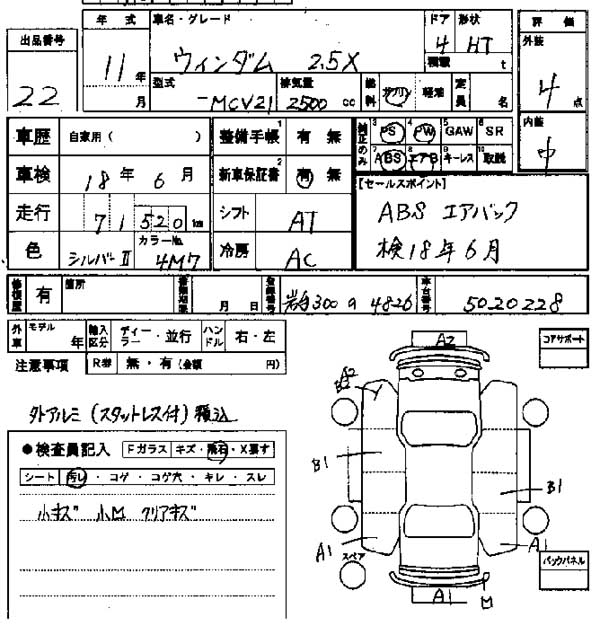 年 式 車名・グレード ドア 形状 評 価
出品番号 11年 月 ウィンダム 2.5X 4 HT 外装
22 積載 t 4点
型式 排気量 燃料 定員
-MCV21 2500 cc ガソリン 軽油 名 内装
中
車歴 自家用( ) 整備手帳 1 有 無 純正のみ 3 PS 4 PW 5 GAW 6 SR
車検 18年 6月 新車保証書 2 有 無 7 ABS 8 エアB 9 キーレス 10 取説
走行 71520km シフト AT 【セールスポイント】
ABS エアバック
色 シルバーII カラーNo. 4M7 冷房 AC 検18年6月
修復歴 有 箇所 月 日 登録番号 300 9 4826 車台番号 5020228
外車 モデル 年 輸入区分 ディーラー・並行 ハンドル 右・左
注意事項 R券 無・有(金額 円)
コアサポート
A2
A2
外アルミ(スタットレス付)積込
●検査員記入 Fガラス キズ・飛石・X要す
シート 汚レ・コゲ・コゲ穴・キレ・スレ
B1
B1
小キズ 小凹 クリアキズ
A1 A1
スペア バックパネル
A1 M